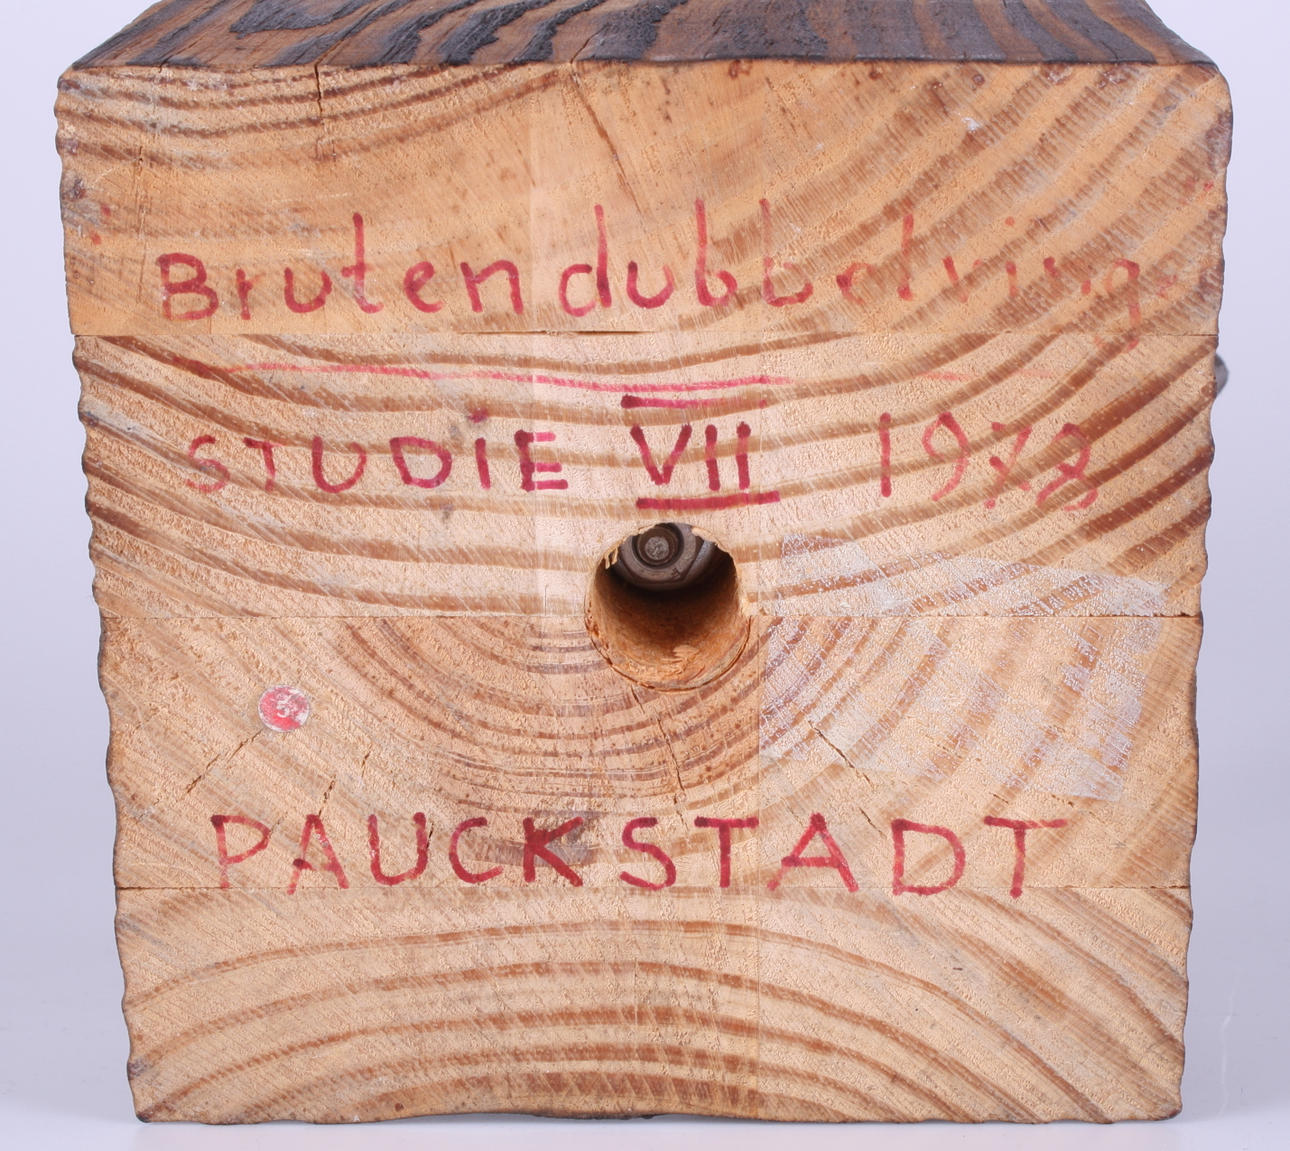 Bruten dubbelvinge
STUDIE VII 1978
3
PAUCKSTADT